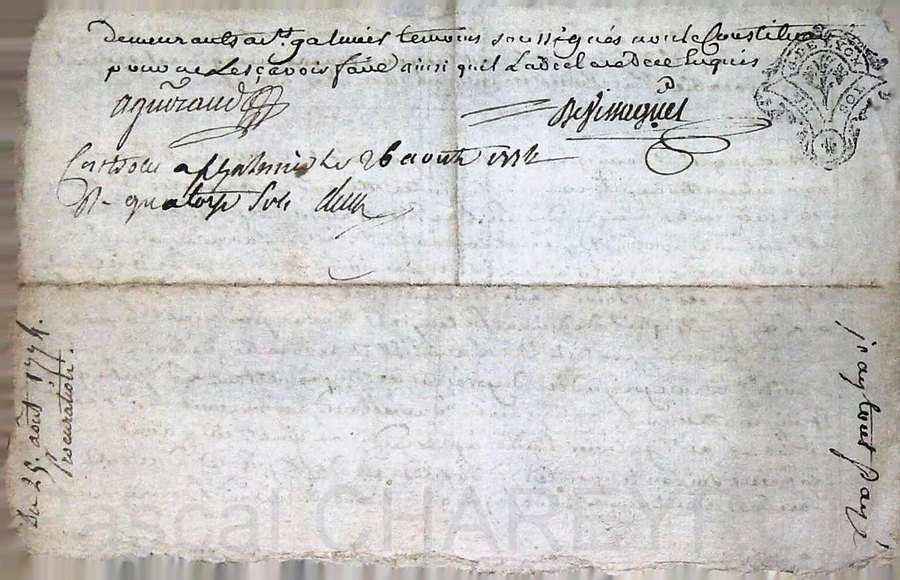 Demeurants a St. galmier temoins soussignés non le Constituant
pour ne Le sçavoir faire ainsi quil La declare de ce Enquis
aguiraud
Controllé a St galmier le 26 aoust 1774
R. quatorze sols
GEN LYON
SOL
Du 25. août 1774.
Procuration.
j'ay tout payé
Pascal CHAREYRON